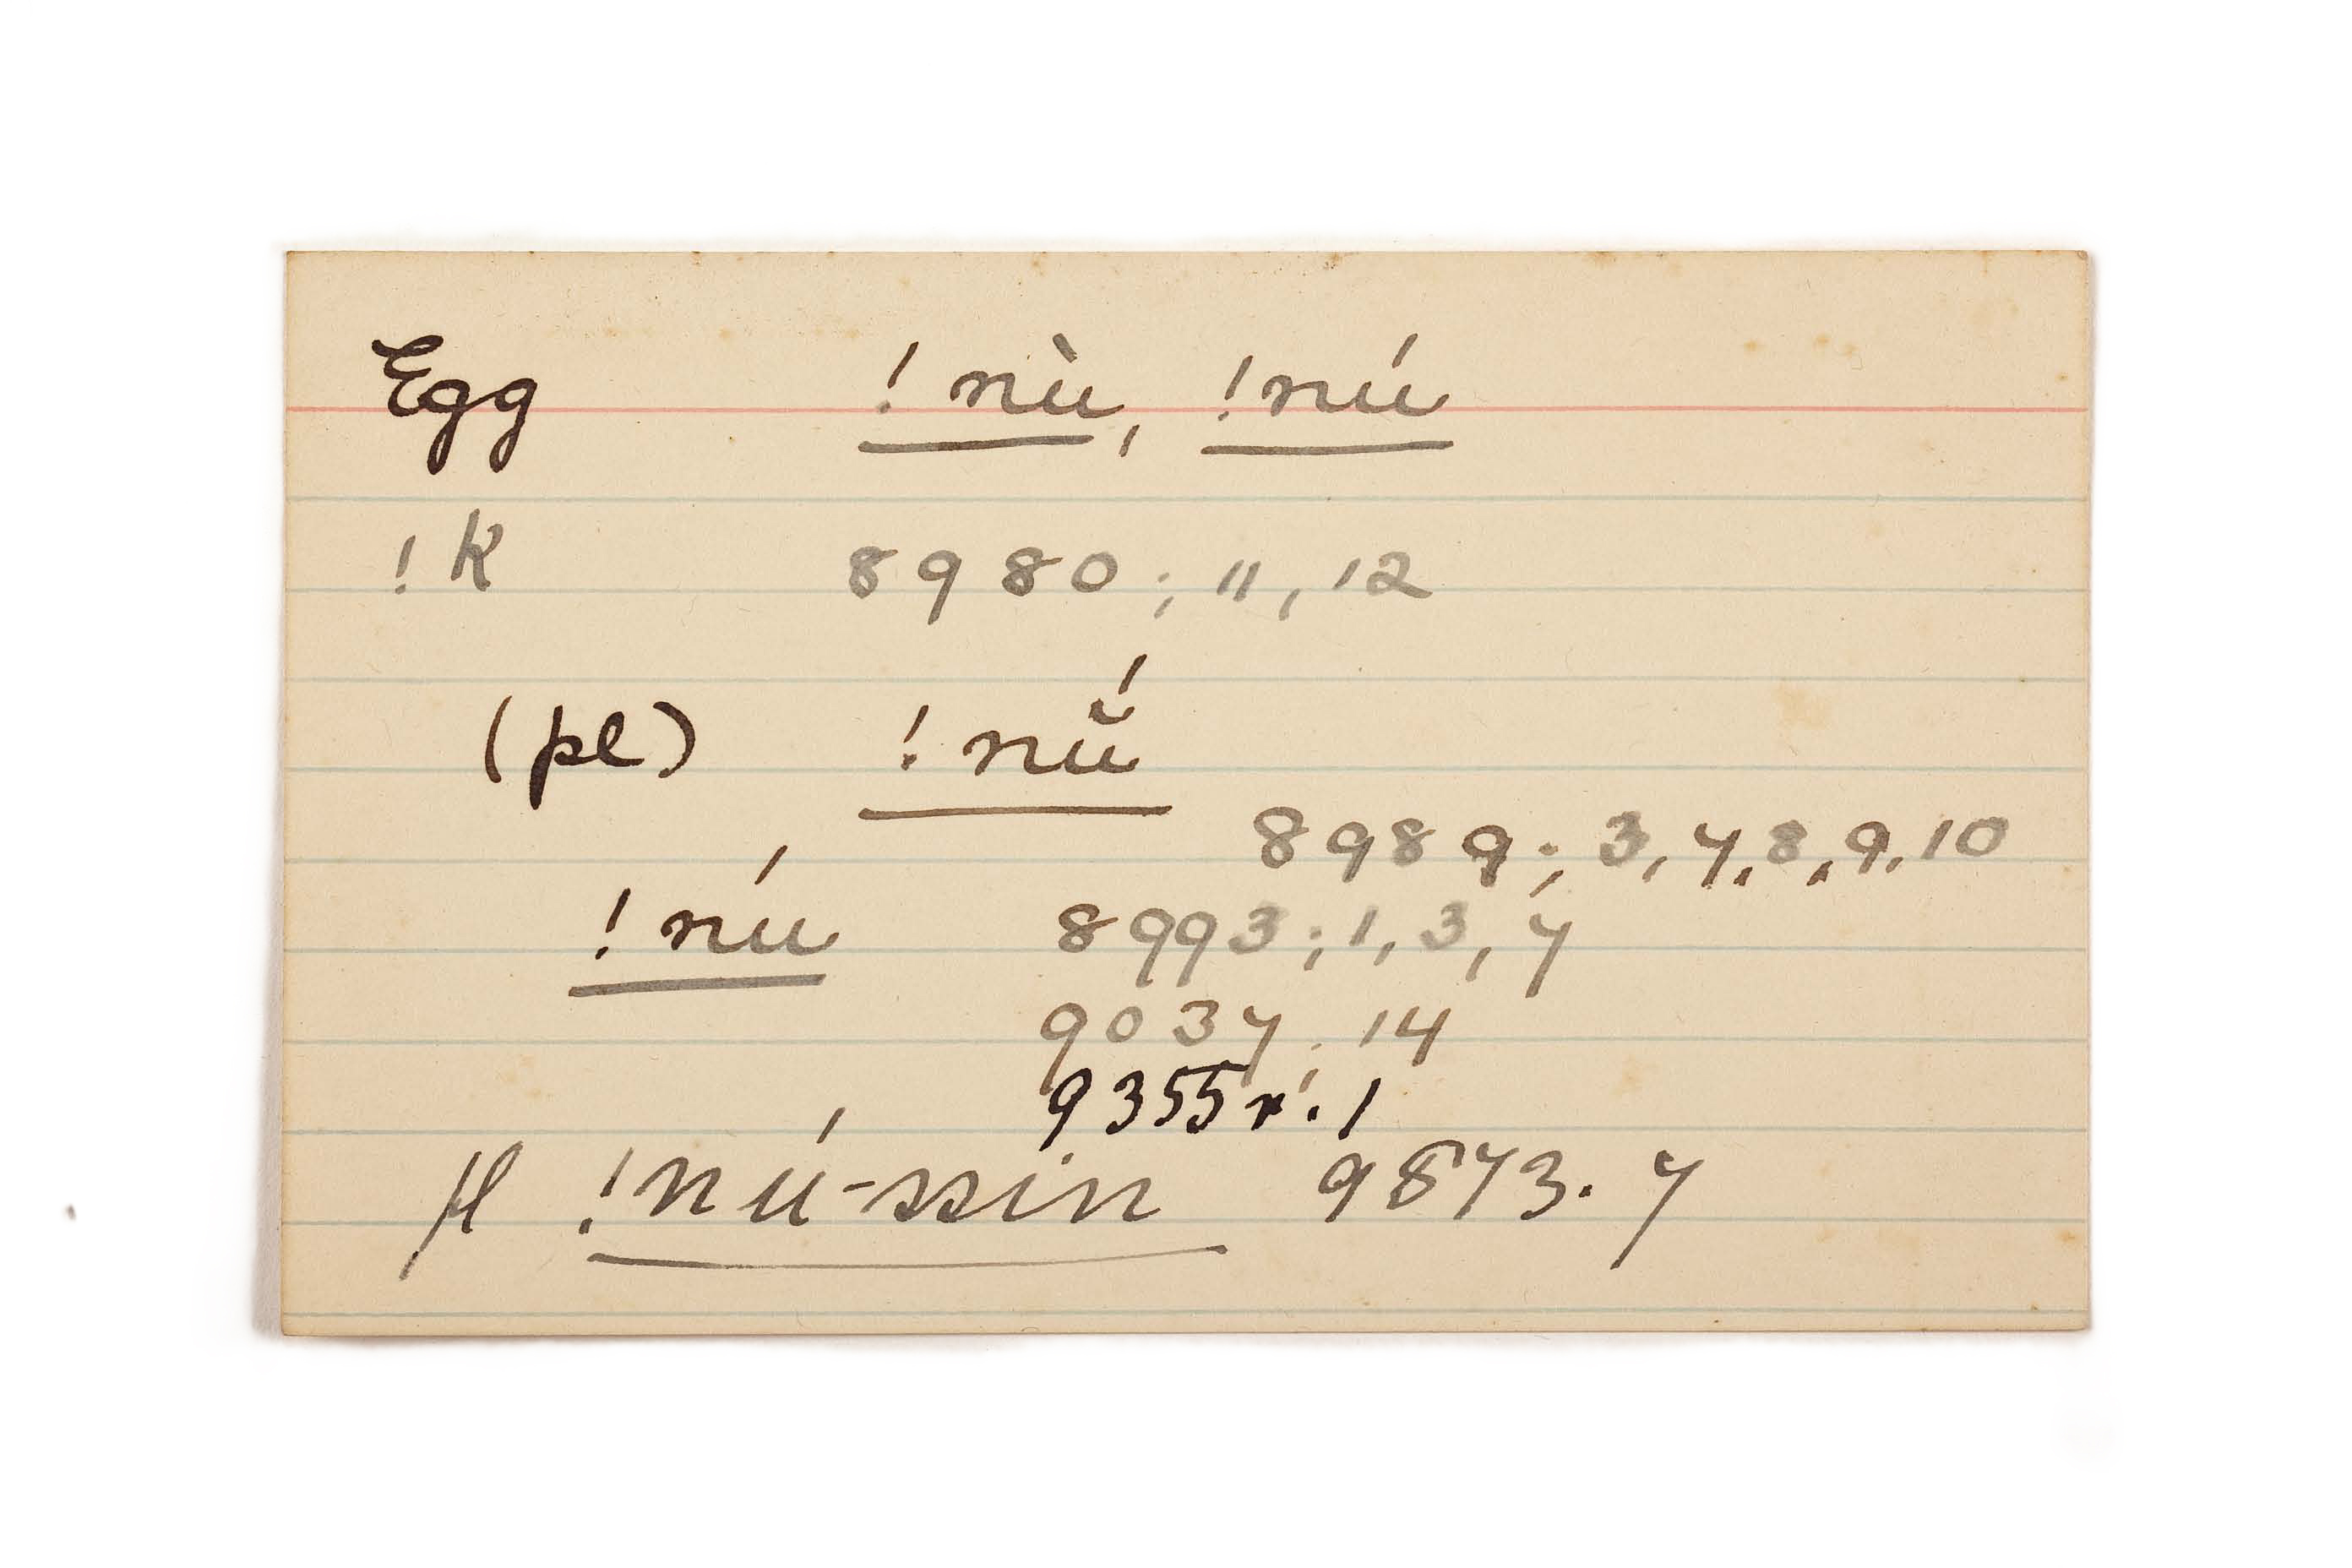 Egg !nù, !nú
!K 8980; 11, 12
(pl) !nŭ́
8989; 3, 7, 8, 9, 10
!nú 8993; 1, 3, 7
9037; 14
9355r'. 1
pl !nú-ssin 9873. 7